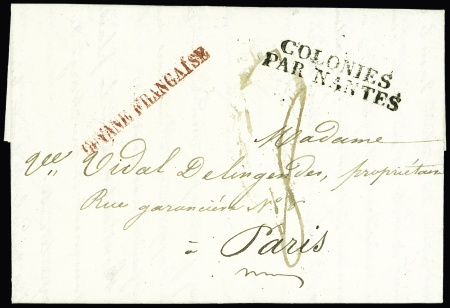 GUYANE FRANÇAISE
COLONIES
PAR NANTES
Madame
Vve Vidal Delingendes, propriétaire
Rue garancière N° 8
à Paris
8